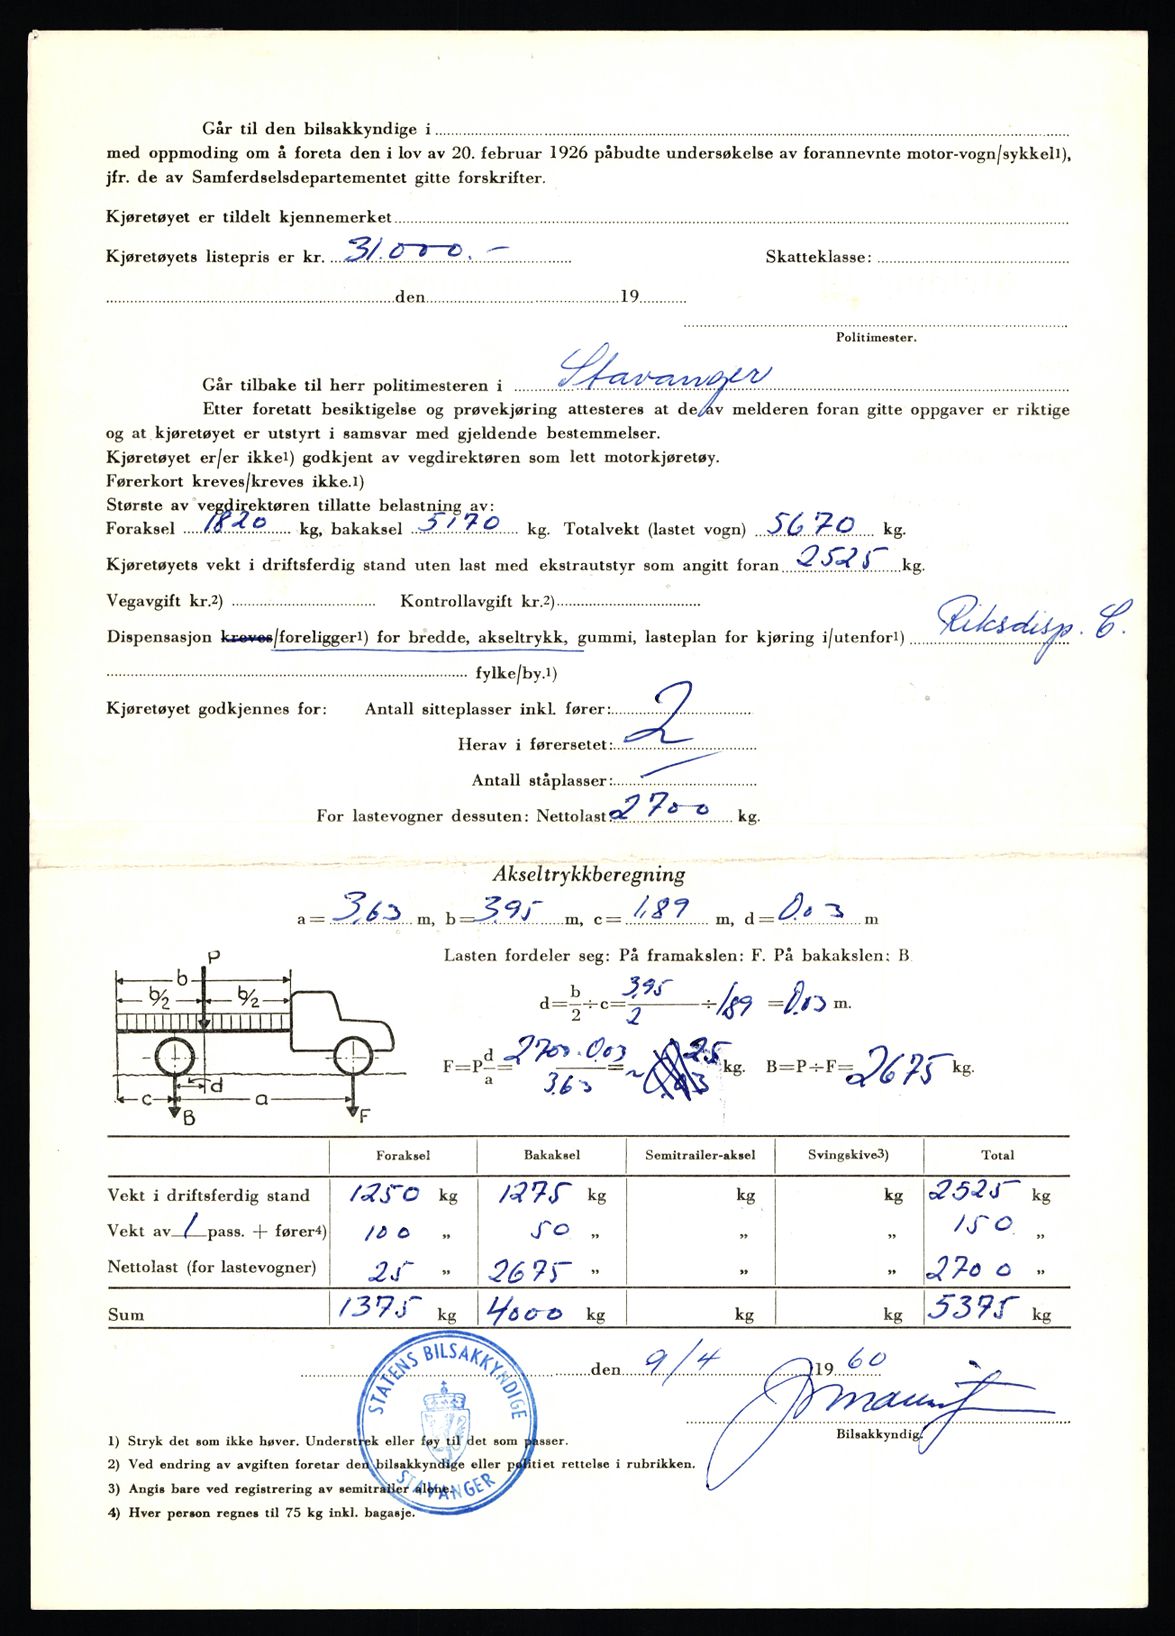 Går til den bilsakkyndige i
med oppmoding om å foreta den i lov av 20. februar 1926 påbudte undersøkelse av forannevnte motor-vogn/sykkel1),
jfr. de av Samferdselsdepartementet gitte forskrifter.
Kjøretøyet er tildelt kjennemerket
Kjøretøyets listepris er kr. 31.000.- Skatteklasse:
den 19
Politimester.
Går tilbake til herr politimesteren i Stavanger
Etter foretatt besiktigelse og prøvekjøring attesteres at de av melderen foran gitte oppgaver er riktige
og at kjøretøyet er utstyrt i samsvar med gjeldende bestemmelser.
Kjøretøyet er/er ikke1) godkjent av vegdirektøren som lett motorkjøretøy.
Førerkort kreves/kreves ikke.1)
Største av vegdirektøren tillatte belastning av:
Foraksel 1820 kg, bakaksel 5170 kg. Totalvekt (lastet vogn) 5670 kg.
Kjøretøyets vekt i driftsferdig stand uten last med ekstrautstyr som angitt foran 2525 kg.
Vegavgift kr.2) Kontrollavgift kr.2)
Dispensasjon kreves/foreligger1) for bredde, akseltrykk, gummi, lasteplan for kjøring i/utenfor1) Riksdisp. C.
fylke/by.1)
Kjøretøyet godkjennes for: Antall sitteplasser inkl. fører: 2
Herav i førersetet:
Antall ståplasser: /
For lastevogner dessuten: Nettolast: 2700 kg.
Akseltrykkberegning
a= 3,63 m, b= 3,95 m, c= 1,89 m, d= 0.03 m
Lasten fordeler seg: På framakslen: F. På bakakslen: B
d= b/2 ÷ c= 3,95/2 ÷ 1,89 = 0.03 m.
F=P d/a = 2700 · 0.03 / 3,63 = ~ 25 kg. B=P÷F= 2675 kg.
P
b
b/2 b/2
d
c a
B F
Foraksel Bakaksel Semitrailer-aksel Svingskive3) Total
Vekt i driftsferdig stand 1250 kg 1275 kg kg kg 2525 kg
Vekt av 1 pass. + fører4) 100 „ 50 „ „ „ 150 „
Nettolast (for lastevogner) 25 „ 2675 „ „ „ 2700 „
Sum 1375 kg 4000 kg kg kg 5375 kg
den 9/4 19 60
Bilsakkyndig.
STATENS BILSAKKYNDIGE
STAVANGER
1) Stryk det som ikke høver. Understrek eller føy til det som passer.
2) Ved endring av avgiften foretar den bilsakkyndige eller politiet rettelse i rubrikken.
3) Angis bare ved registrering av semitrailer alene.
4) Hver person regnes til 75 kg inkl. bagasje.